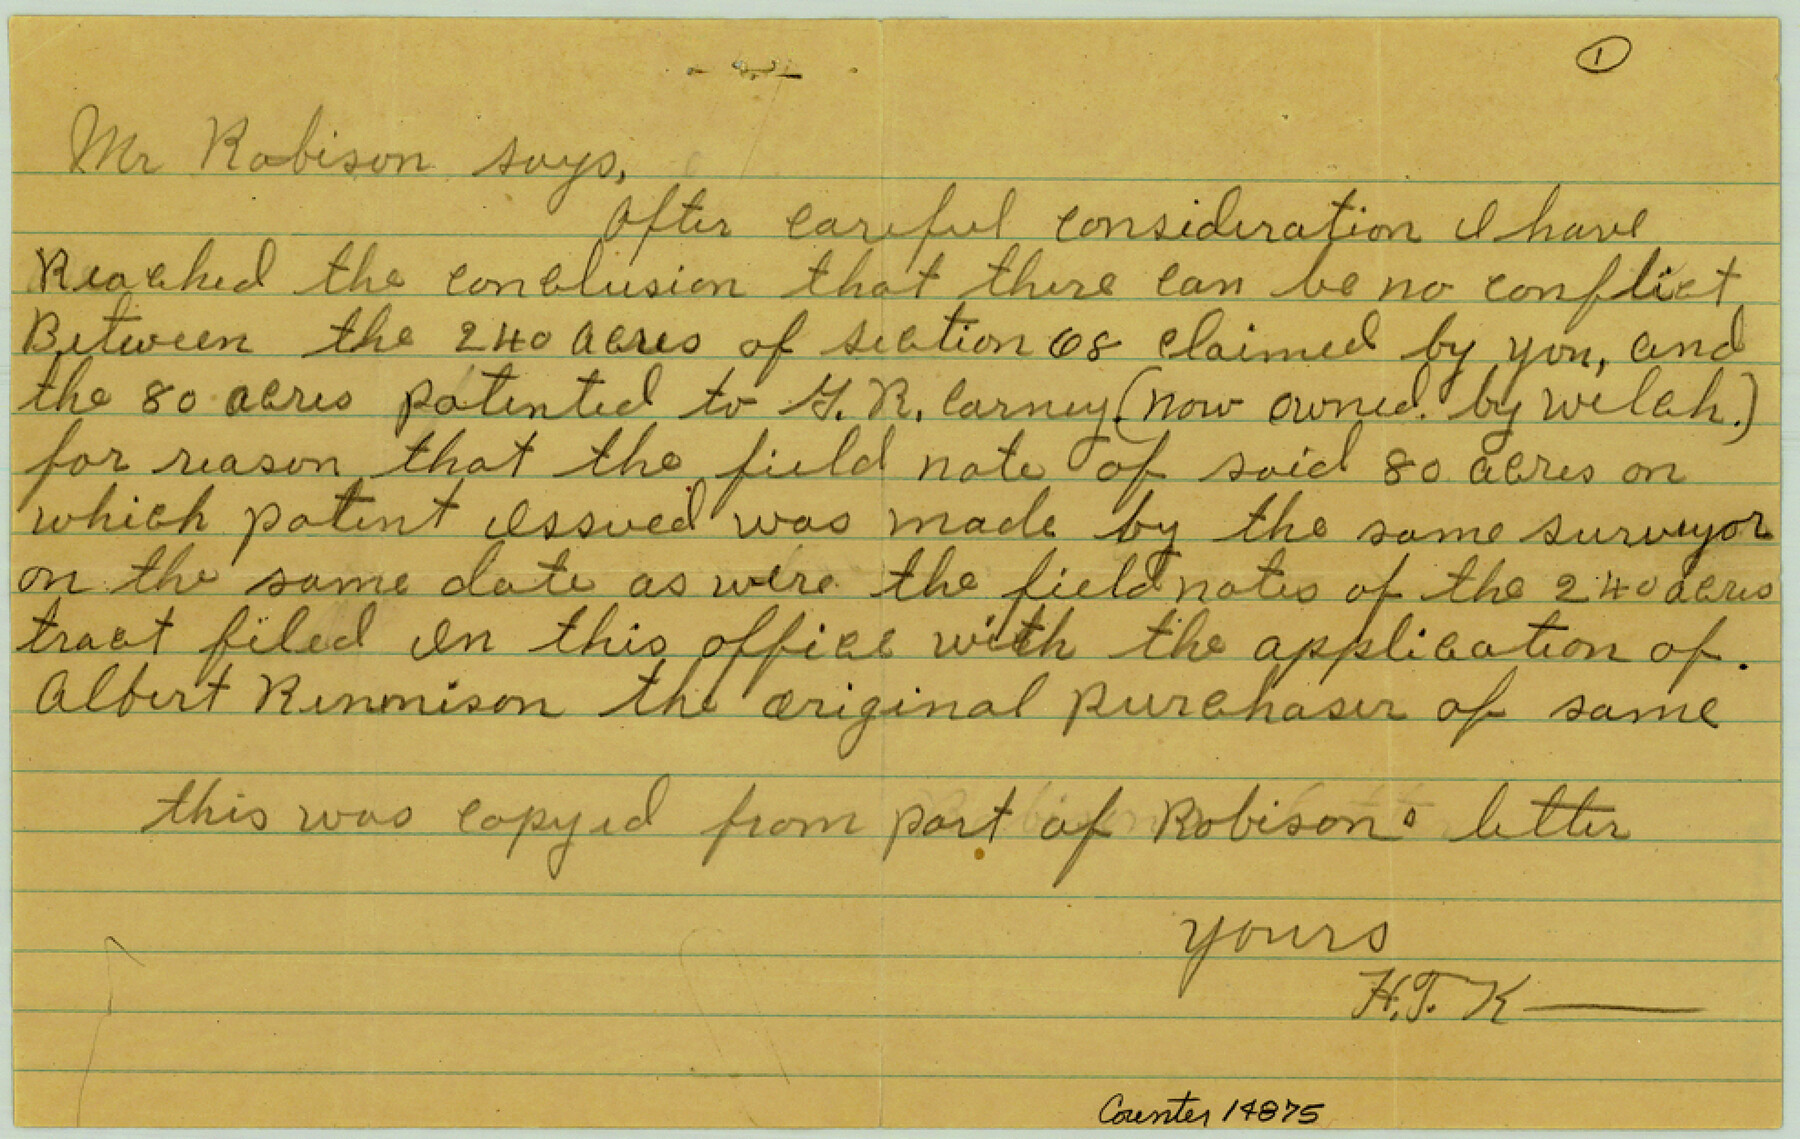 1
Mr Robison says,
After careful consideration I have
Reached the conclusion that there can be no conflict
Between the 240 acres of section 68 claimed by you, and
the 80 acres patented to G. R. Carney. (now owned by Welch.)
for reason that the field note of said 80 acres on
which patent Issued was made by the same surveyor
on the same date as were the field notes of the 240 acres
tract filed In this office with the application of.
Albert Rennison the original Purchaser of same
this was copyed from part of Robisons letter
yours
H.T. K
Counter 14875